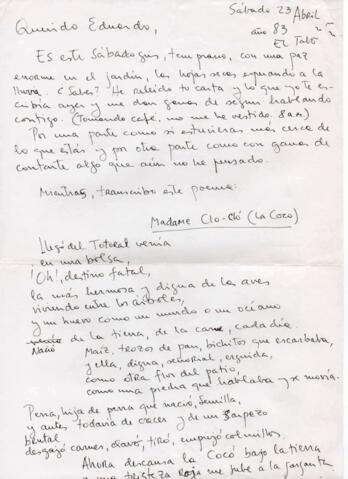 Sábado 23 Abril
año 83
El Tabo
Querido Eduardo,
Es este Sábado gris, temprano, con una paz
enorme en el jardín, las hojas secas esperando a la
lluvia. ¿Sabes? He releído tu carta y lo que yo te es-
cribía ayer y me dan ganas de seguir hablando
contigo. (Tomando café, no me he vestido. 8 a.m.)
Por una parte como si estuvieras más cerca de
lo que estás y por otra parte como con ganas de
contarte algo que aún no he pensado.
Mientras, transcribo este poema:
Madame Clo-Cló (La Coco)
Llegó del Totoral venía
en una bolsa,
¡Oh!, destino fatal,
la más hermosa y digna de las aves
viviendo entre los árboles,
y un huevo como un mundo o un océano
Nació de la tierra, de la carne, cada día.
Maíz, trozos de pan, bichitos que escarbaba,
y ella, digna, señorial, erguida,
como otra flor del patio,
como una piedra que hablaba y se movía.
Perra, hija de perra que nació, Semilla,
y antes todavía de crecer y de un zarpazo
brutal,
desgajó carnes, clavó, tiró, empujó colmillos.
Ahora descansa la Cocó bajo la tierra
y una tristeza roja me sube a la garganta